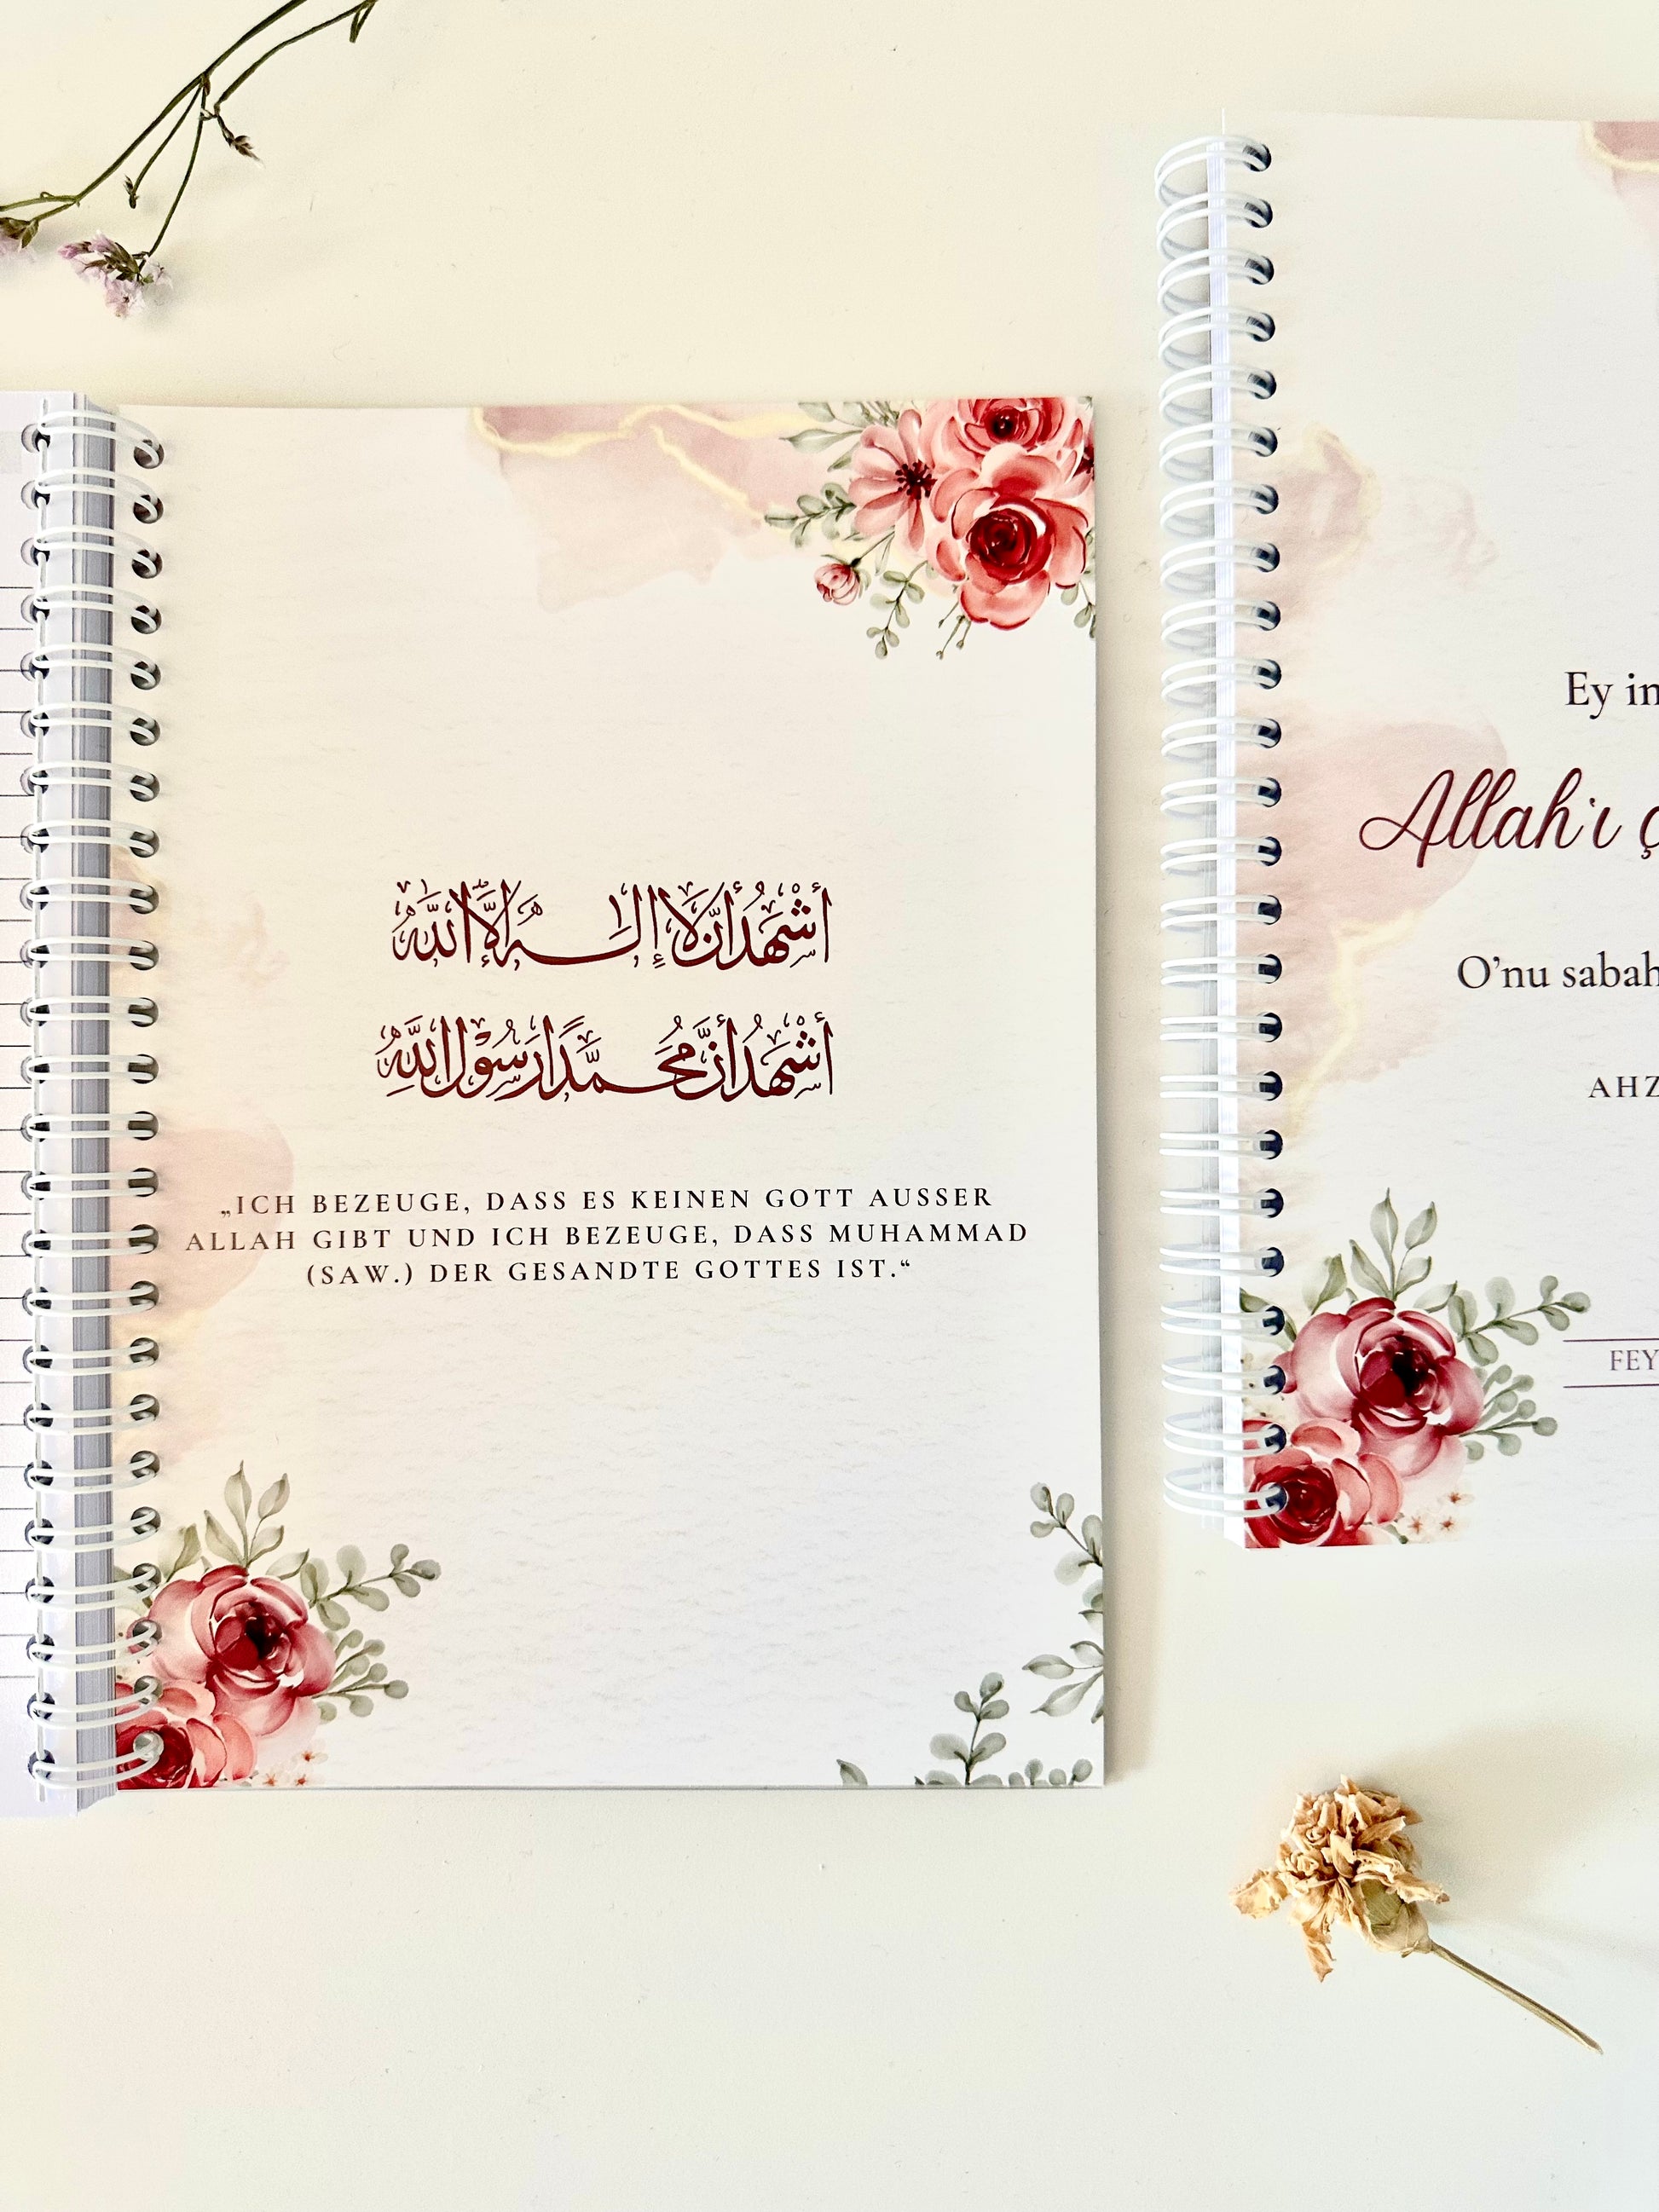 أَشْهَدُ أَنْ لَا إِلٰهَ إِلَّا اللّٰهُ
أَشْهَدُ أَنَّ مُحَمَّدًا رَسُوْلُ اللّٰهِ
„ICH BEZEUGE, DASS ES KEINEN GOTT AUSSER
ALLAH GIBT UND ICH BEZEUGE, DASS MUHAMMAD
(SAW.) DER GESANDTE GOTTES IST.“
Ey in
Allah'ı ç
O’nu sabah
AHZ
FEY